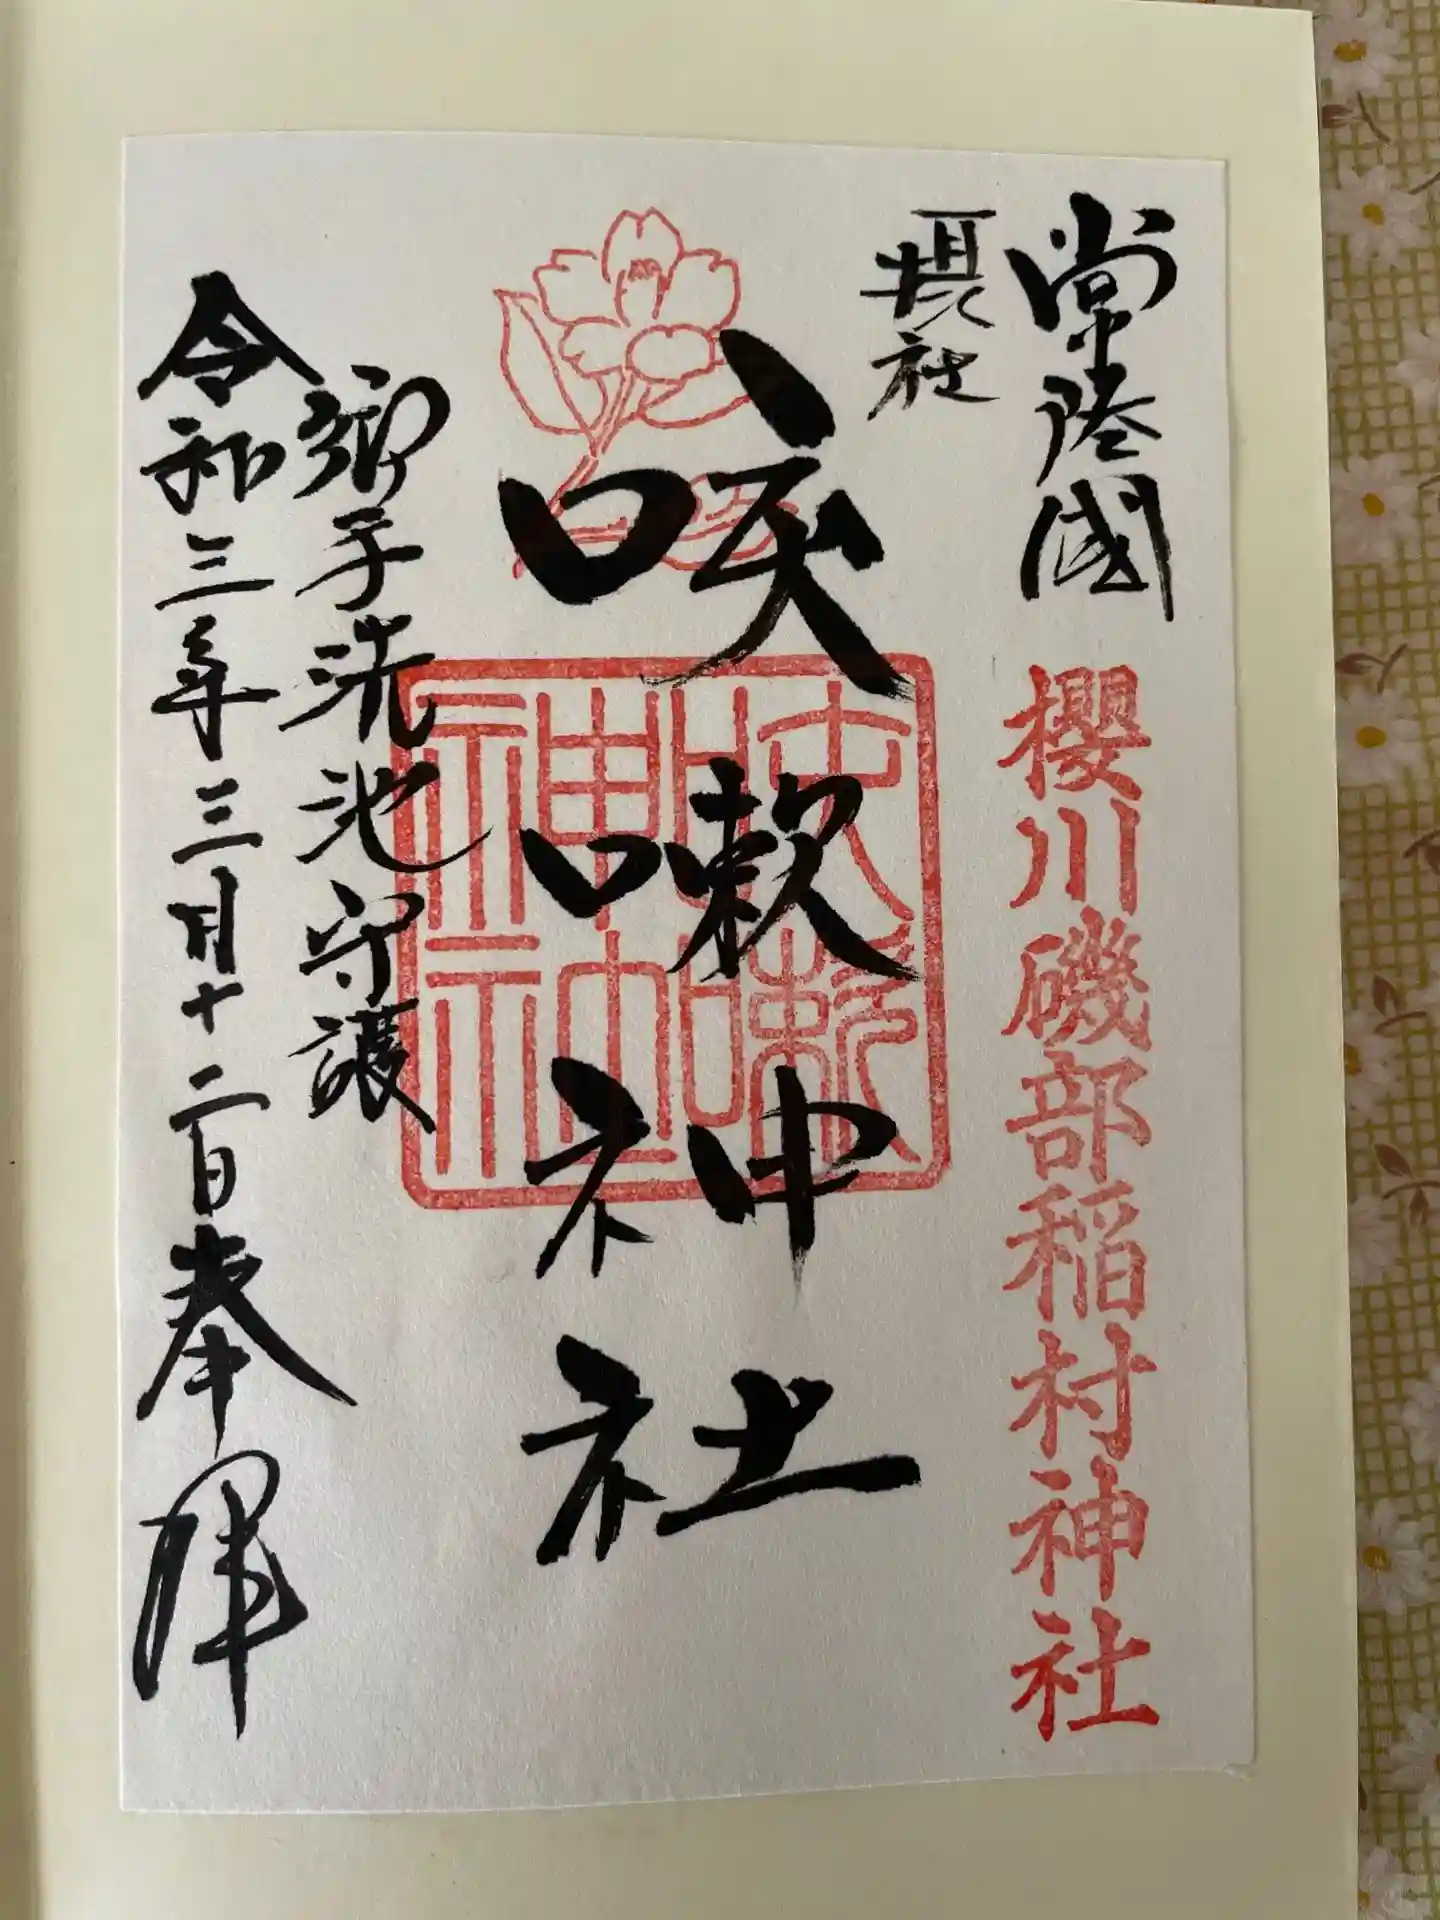 常陸國
櫻川磯部稲村神社
摂社
咳嗽神社
咳嗽神社
御手洗池守護
令和三年三月十二日奉拝